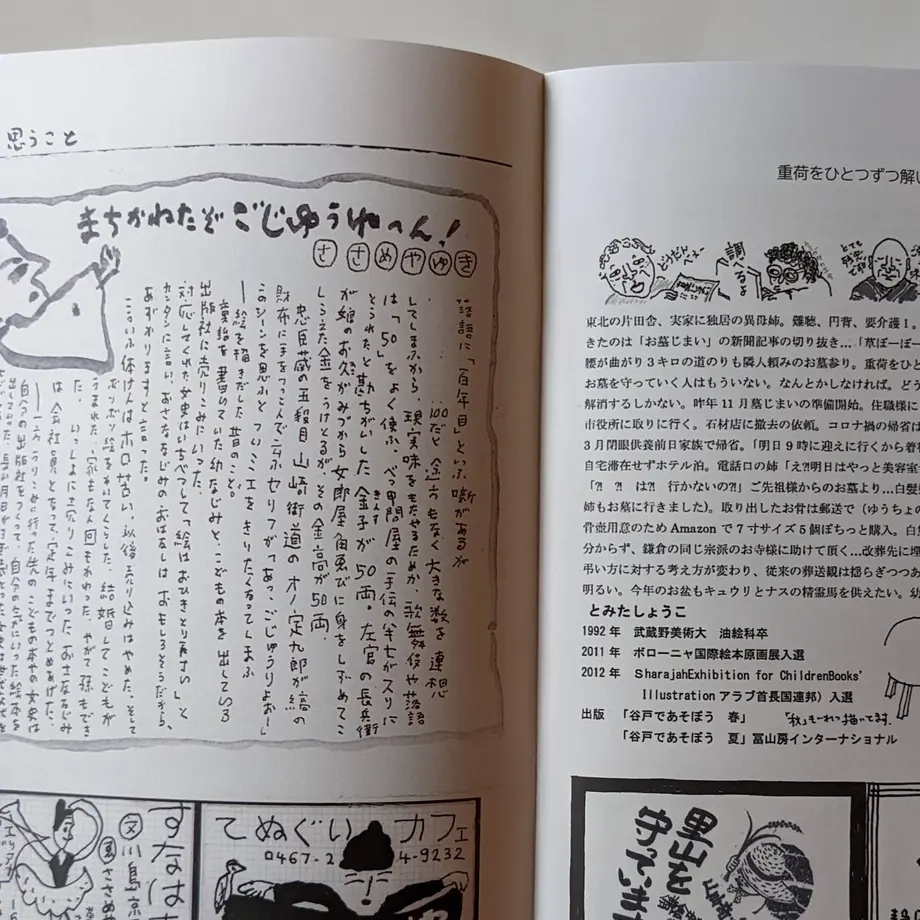 思うこと
まちかねたぞ ごじゅうねーん!
ささめやゆき
落語に「百年目」といふ噺があるが
100だと途方もなく大きな数を連想
してしまふから、現実味をもたせるためか歌舞伎や落語
は「50」をよく使ふ。べっ甲問屋の手代の半七がスリに
とられたと勘ちがいした金子が50両。左官の長兵衛
が娘のお久がみづから女郎屋角海老に身をしずめてこ
しらえた金をうけとるが その金高が50両。
忠臣蔵の五段目 山崎街道のオノ定九郎が縞の
財布に手をつっこんで云ふセリフが「あっごじゅうりょおー」
このシーンを思ふと ついミエをきりたくなってしまふ
―絵を描きだした昔のこと。
童話を書いていた幼なじみと、こどもの本を出している
出版社に売りこみにいった。
対応してくれた女史はいちべつして「絵はおひきとり下さい」と
カンタンに言い、おさななじみのおはなしは おもしろそうだから、
あずかりますと言った。
こういふ体けんはホロ苦い。以後売り込みはやめた。そして
ポツポツ絵をかいてくらした。結婚してこどもが
うまれた。家もなん回もかわった。やがて孫もでき
た。いっしょに売りこみにいったおさななじみ
は会社員となって、定年までつとめあげた。
―一方、うりこみに行った先のこどもの本の女史は
自分の出版社をつくって、自分の気にいった絵本を
すなは
文 川島京
てぬぐいカフェ
0467-2 4-9232
重荷をひとつずつ解い
どうだんべえー
調べるよ
東北の片田舎、実家に独居の異母姉。難聴、円背、要介護1。
きたのは「お墓じまい」の新聞記事の切り抜き…「草ぼーぼー
腰が曲がり3キロの道のりも隣人頼みのお墓参り。重荷をひと
お墓を守っていく人はもういない。なんとかしなければ。どう
解消するしかない。昨年11月墓じまいの準備開始。住職様に
市役所に取りに行く。石材店に撤去の依頼。コロナ禍の帰省は
3月閉眼供養前日家族で帰省。「明日9時に迎えに行くから着
自宅滞在せずホテル泊。電話口の姉「え?!明日はやっと美容室
「?! ? は?! 行かないの?!」ご先祖様からのお墓より…白髪
姉もお墓に行きました)。取り出したお骨は郵送で(ゆうちょの
骨壺用意のためAmazonで7寸サイズ5個ぽちっと購入。白
分からず、鎌倉の同じ宗派のお寺様に助けて頂く…改葬先に埋
弔い方に対する考え方が変わり、従来の葬送観は揺らぎつつあ
明るい。今年のお盆もキュウリとナスの精霊馬を供えたい。幼
とみたしょうこ
1992年 武蔵野美術大 油絵科卒
2011年 ボローニャ国際絵本原画展入選
2012年 SharajahExhibition for ChildrenBooks'
Illustration アラブ首長国連邦)入選
出版 「谷戸であそぼう 春」 「秋」もーれつ描いてます.
「谷戸であそぼう 夏」冨山房インターナショナル
里山を
守っていま